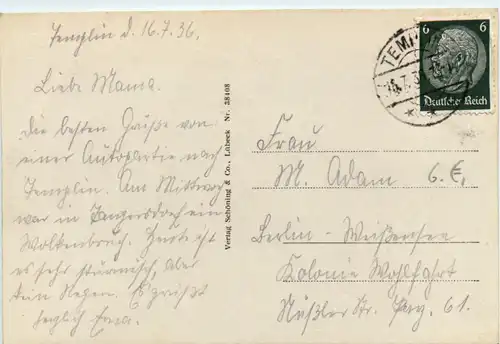 Templin d. 16.7.36.
Liebe Mama.
Die besten Grüße von
einer Autopartie nach
Templin. Am Mittwoch
war in Jangersdorf ein
Wolkenbruch. Heut ist
es sehr stürmisch aber
kein Regen. Es grüßt
herzlich Erna.
Verlag Schöning & Co., Lübeck Nr. 38408
TEMPLIN
6 6
Deutsches Reich
Frau
M. Adam 6. €.
Berlin - Weißensee
Kolonie Wohlfahrt
Nüßler Str. Parz. 61.